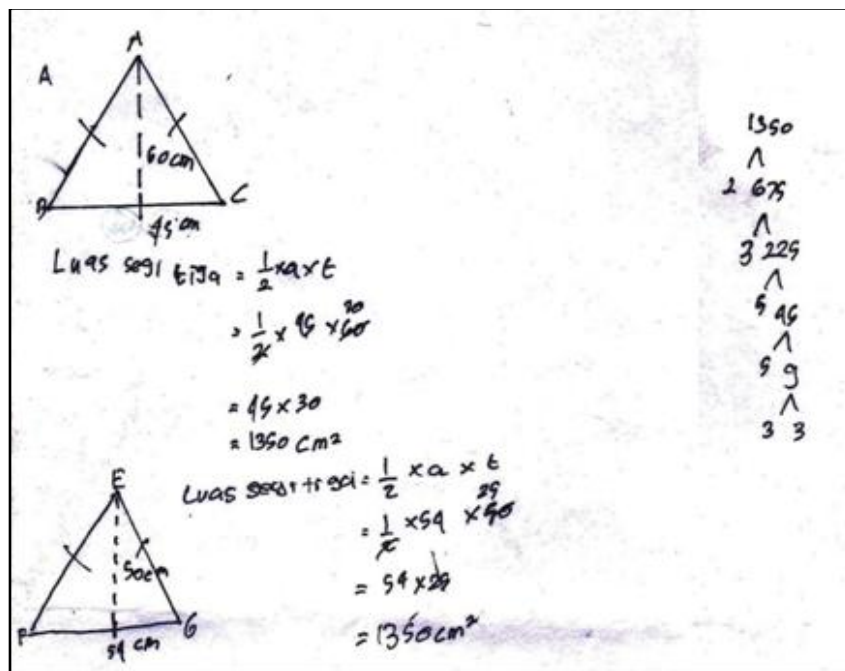 A
A
60cm
B
C
45cm
Luas segi tiga = 1/2 x a x t
= 1/2 x 45 x 60 30
= 45 x 30
= 1350 cm²
E
50cm
F
G
54 cm
Luas segi tiga = 1/2 x a x t
= 1/2 x 54 x 50 25
= 54 x 25
= 1350 cm²
1350
2 675
3 225
5 45
5 9
3 3